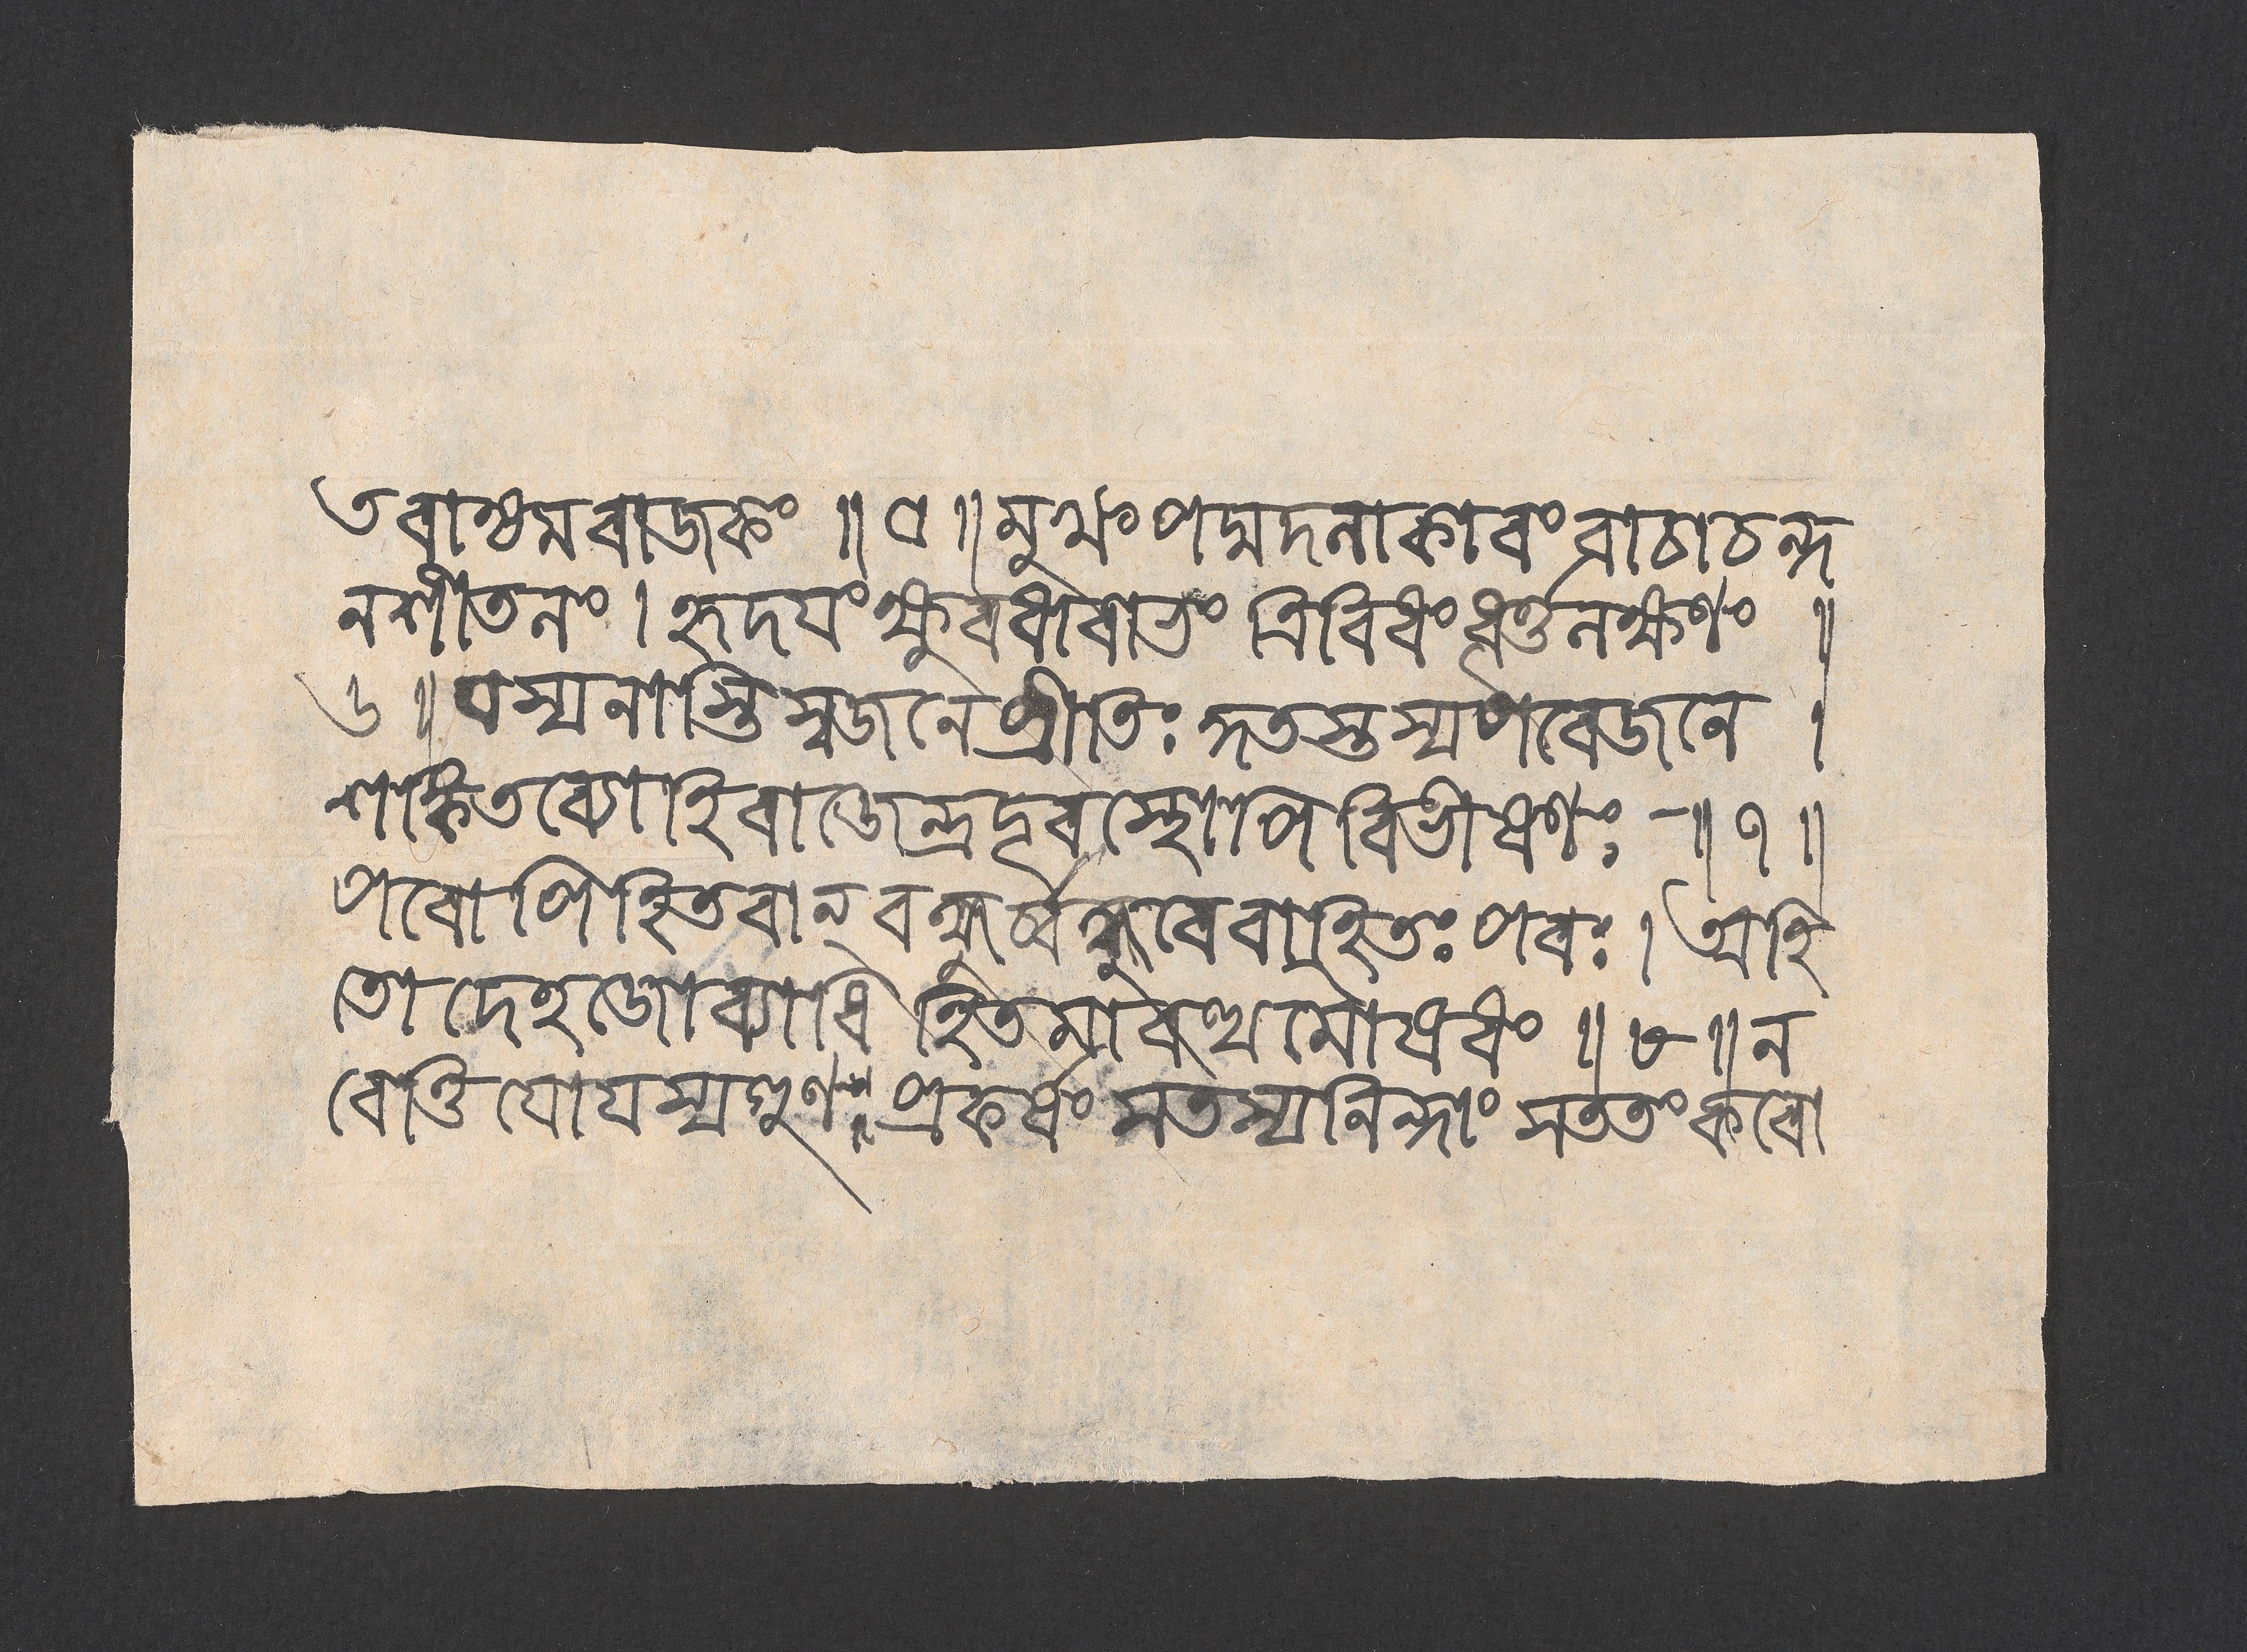 তরাষ্ট্রমরাজকং ॥ ৫ ॥ মুখং পদ্মদলাকারং বাচা চন্দ
নশীতলং । হৃদয়ং ক্ষুরধারাভং ত্রিবিধং ধূর্ত্তলক্ষণং ॥
৬ ॥ যস্য নাস্তি স্বজনে প্রীতিঃ কুতস্তস্য পরে জনে ।
শঙ্কিতব্যো হি রাজেন্দ্র দূরস্থোপি বিভীষণঃ ॥ ৭ ॥
পরোপি হিতবান্ বন্ধুর্বন্ধুরেবাহিতঃ পরঃ । অহি
তো দেহজো ব্যাধি হিতমারণ্যমৌষধং ॥ ৮ ॥ ন
বেত্তি যো যস্য গুণপ্রকর্ষং স তস্য নিন্দাং সততং করো